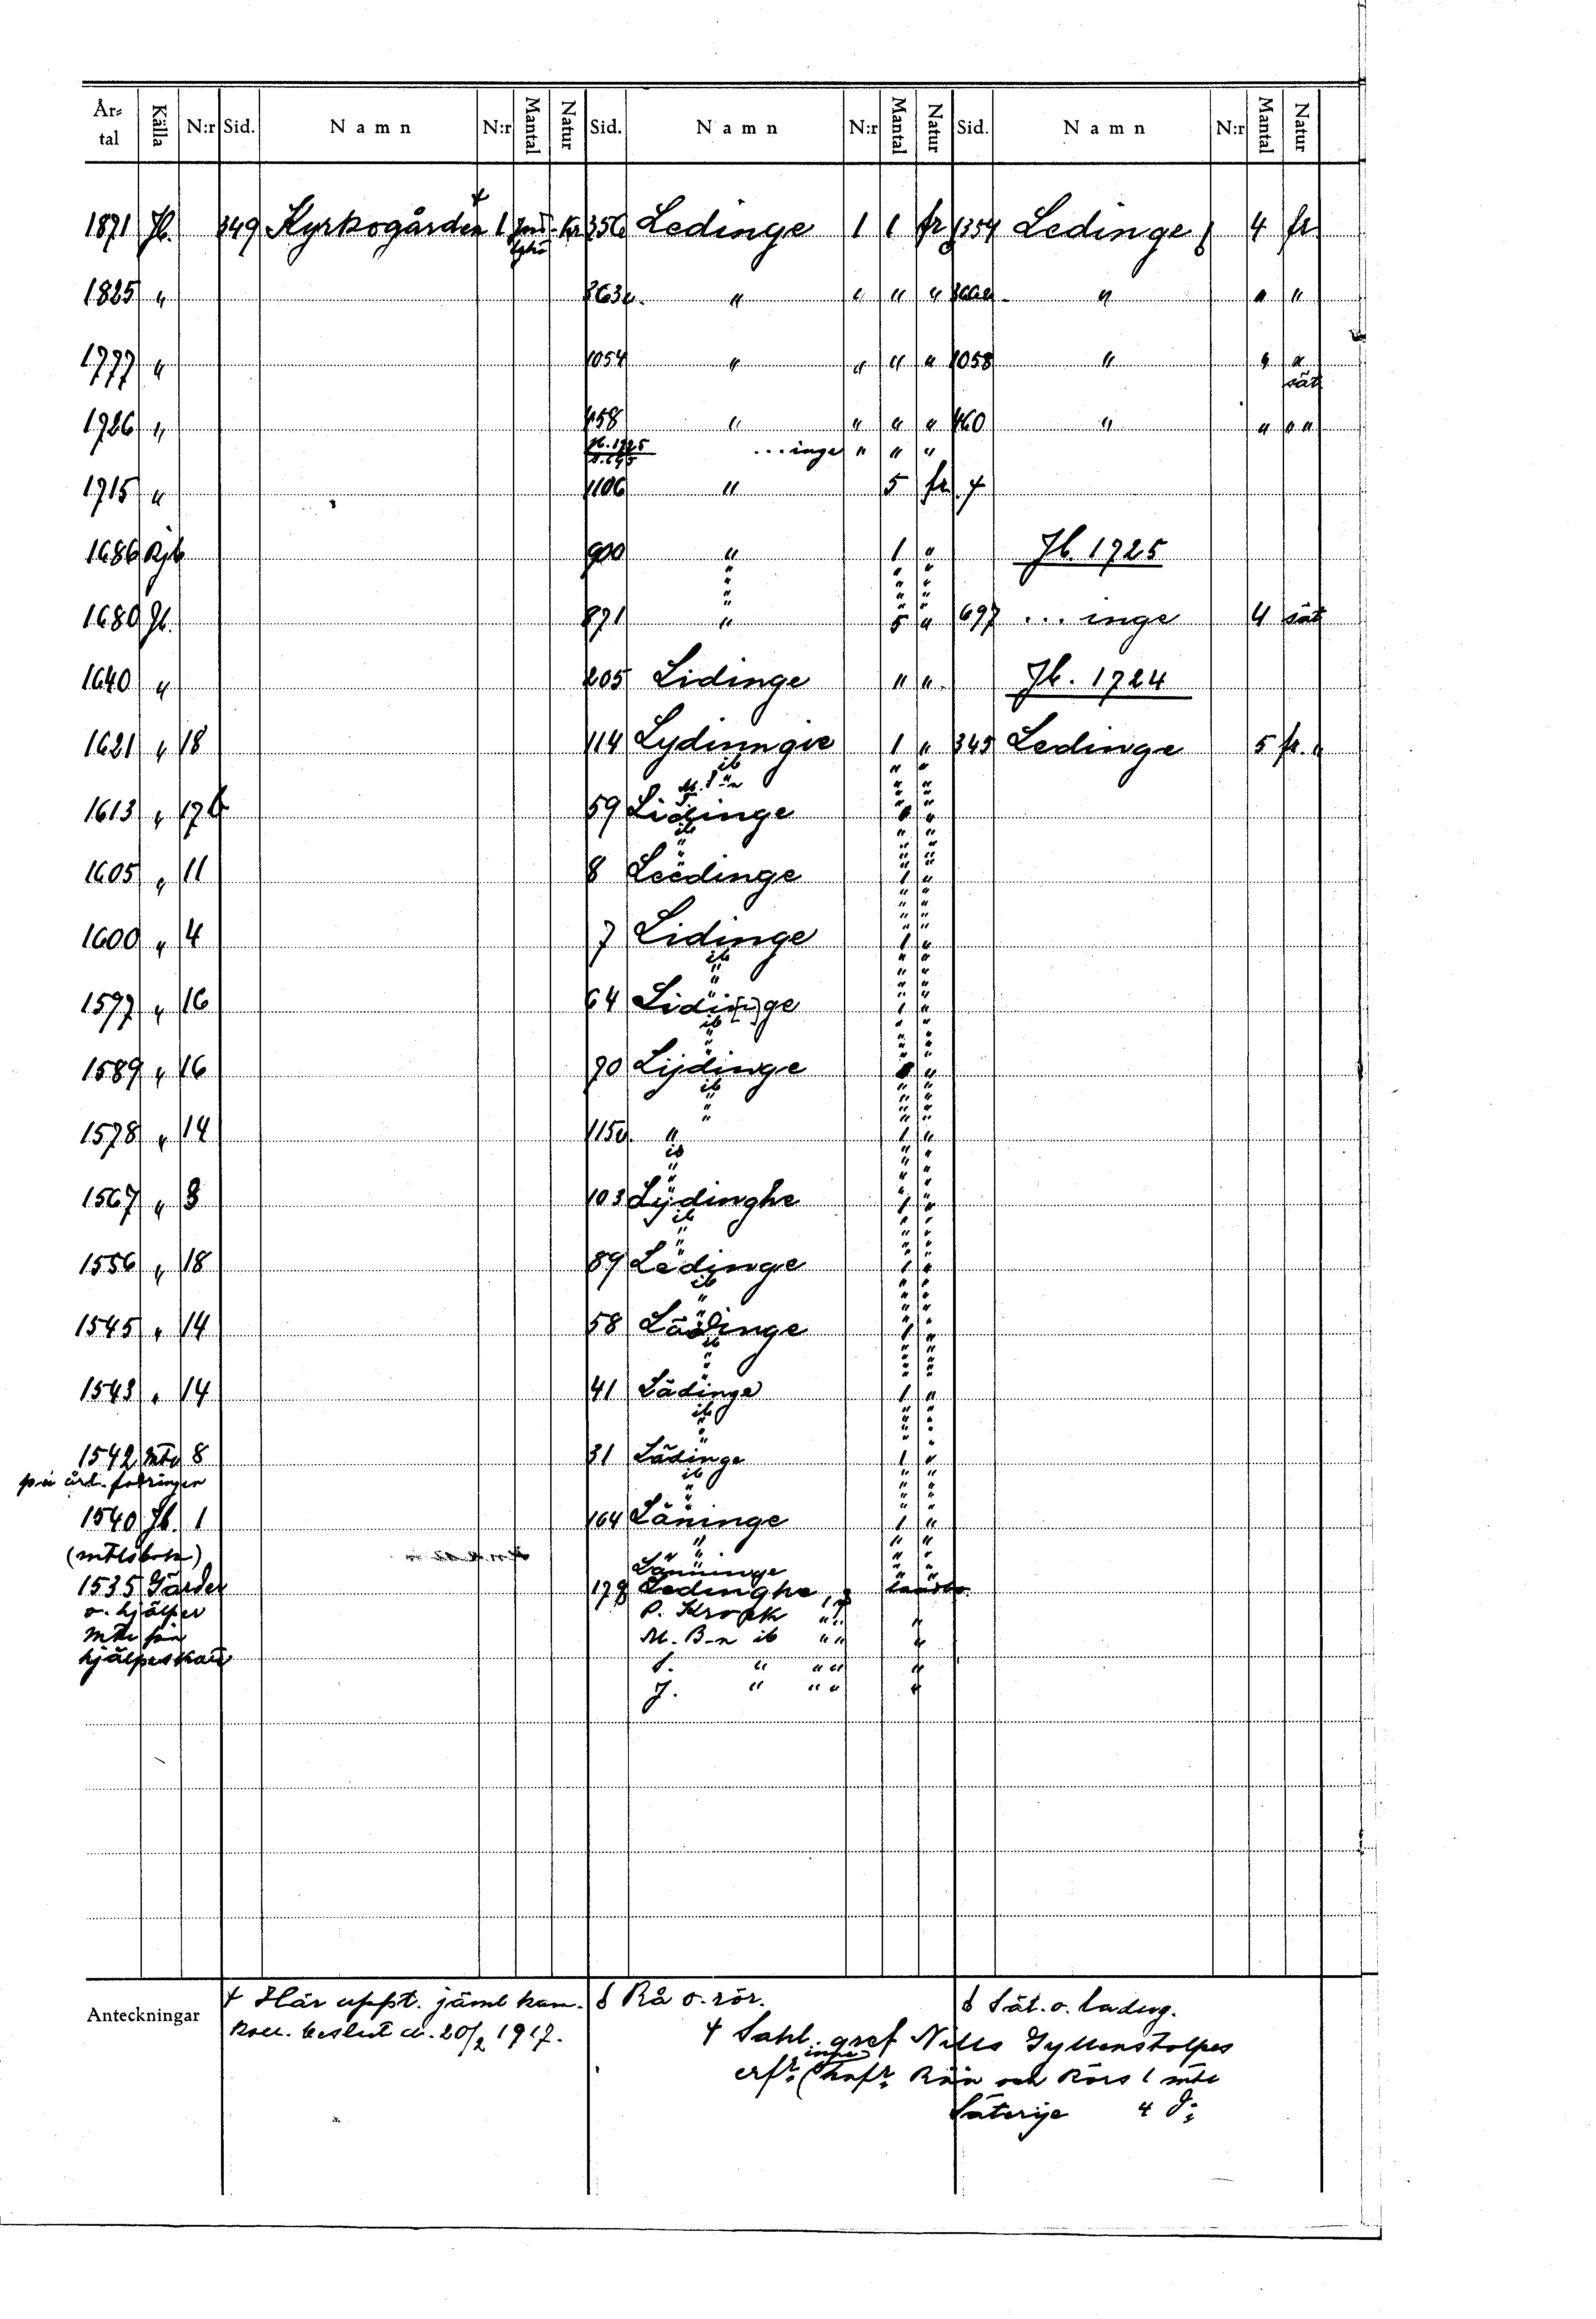 År-tal Källa N:r Sid. Namn N:r Mantal Natur Sid. Namn N:r Mantal Natur Sid. Namn N:r Mantal Natur
1871 Jb. 349 Kyrkogården 1 kr 356 Ledinge 1 1 fr 354 Ledinge 4 fr
1825 " " " " " " " "
1777 " 1054 " " " " 1058 " " "
sät
1726 " 458 " " " " 460 " " " "
Jb. 1725 ...inge " " "
1715 " 1106 " 5 fr.
1686 Rjb 900 " 1 " Jb. 1725
" " "
1680 Jb. 871 " 5 " 697 ...inge 4 sät
1640 " 205 Lidinge " " Jb. 1724
1621 " 18 114 Lydinngie 1 " 345 Ledinge 5 fr.
ib " "
1613 " 17 b 59 Lidinge "
ib " "
1605 " 11 8 Leedinge 1 "
1600 " 4 7 Lidinge 1 "
ib " "
1597 " 16 64 Lidi[n]ge 1 "
ib " "
1589 " 16 70 Lijdinge "
ib " "
1578 " 14 115 " 1 "
ib " "
1567 " 8 103 Lydinghe 1 "
ib " "
1556 " 18 89 Ledinge 1 "
ib " "
1545 " 14 58 Lädinge 1 "
ib " "
1543 " 14 41 Lädinge 1 "
ib " "
1542 8 31 Lädinge 1 "
på årl. ib " "
1540 Jb. 1 164 Läninge 1 "
(mtlsbok) " " "
Länninge
1535 Gärder 178 Ledinghe landbo
o. hjälper P. Krook "
M. B-n ib " " "
hjälpeskatt " " " "
J. " " " "
Anteckningar
Här uppt. jäml. kam. Rå o. rör. Sät. o. ladug.
koll. beslut d. 20/2 1917. Sahl. gref Nills Gyllenstolpes
inne
erfr. (hafr. Råå och Rörs 1 mtl
Säterije 4 d: